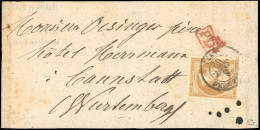 Monsieur Oisinger père
hôtel Herrmann
à Cannstatt
(Wurtemberg)
PD